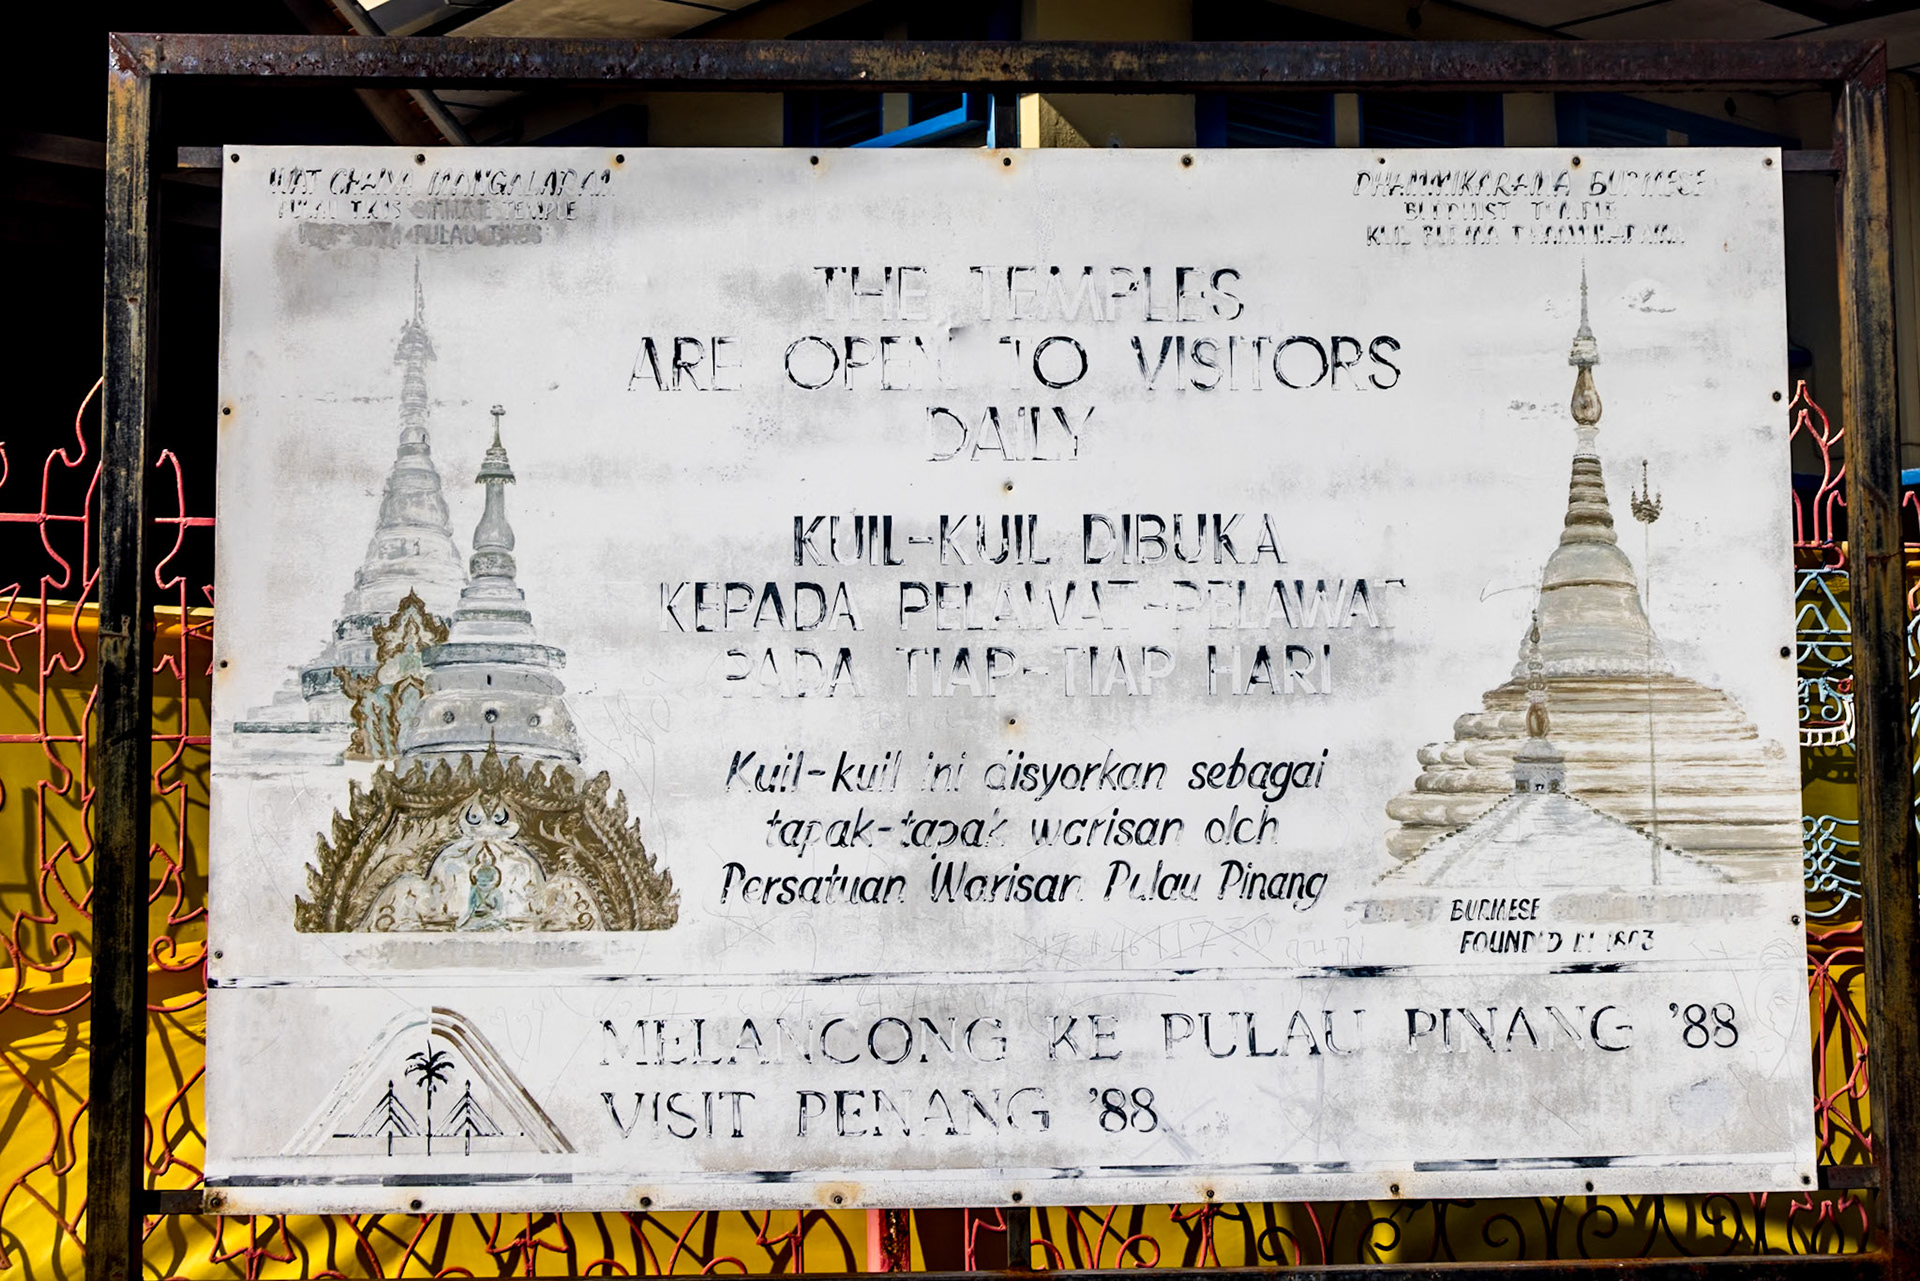 WAT CHAIYA MANGALARAM
PULAU TIKUS SIAMESE TEMPLE
PULAU TIKUS
DHAMMIKARAMA BURMESE
BUDDHIST TEMPLE
KUIL BURMA DHAMMIKARAMA
THE TEMPLES
ARE OPEN TO VISITORS
DAILY
KUIL-KUIL DIBUKA
KEPADA PELAWAT-PELAWAT
PADA TIAP-TIAP HARI
Kuil-kuil ini disyorkan sebagai
tapak-tapak warisan oleh
Persatuan Warisan Pulau Pinang
BURMESE
FOUNDED IN 1803
MELANCONG KE PULAU PINANG '88
VISIT PENANG '88